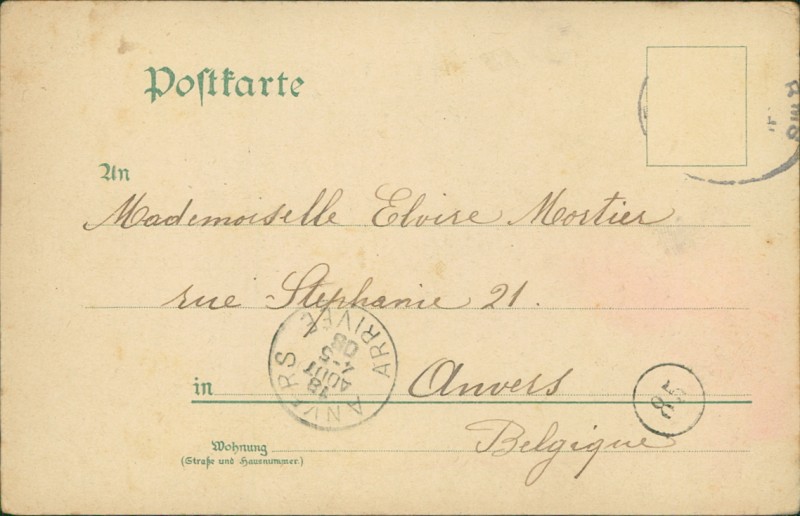 Postkarte
An
Mademoiselle Elvire Mortier
rue Stephanie 21.
in Anvers
Belgique
Wohnung
(Straße und Hausnummer.)
ANVERS
18
AOUT
4-5
08
ARRIVÉE
85